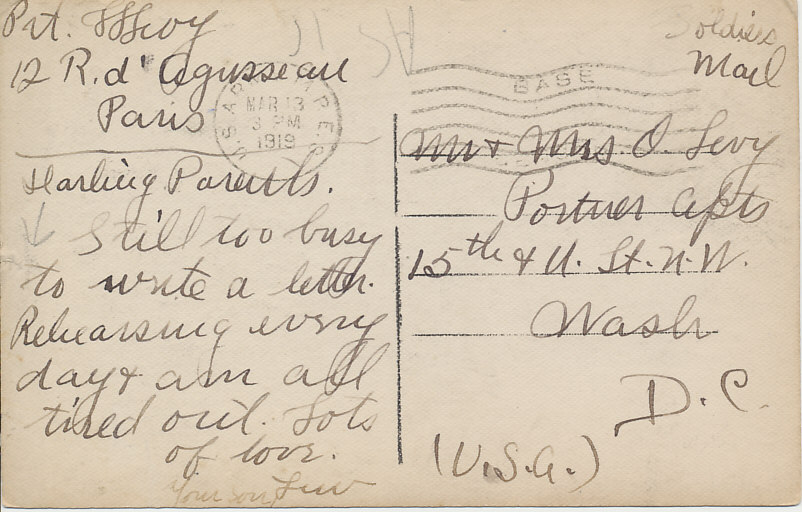 Pvt. Levy
12 R. d' Agusseau
Paris
Soldiers
Mail
BASE
MAR 13
3 PM
1919
Mr + Mrs. O. Levy
Portner Apts
15th & U. St. N.W.
Wash
D.C.
(U.S.A.)
Darling Parents.
Still too busy
to write a letter.
Rehearsing every
day & am all
tired out. Lots
of love.
Your son Lew